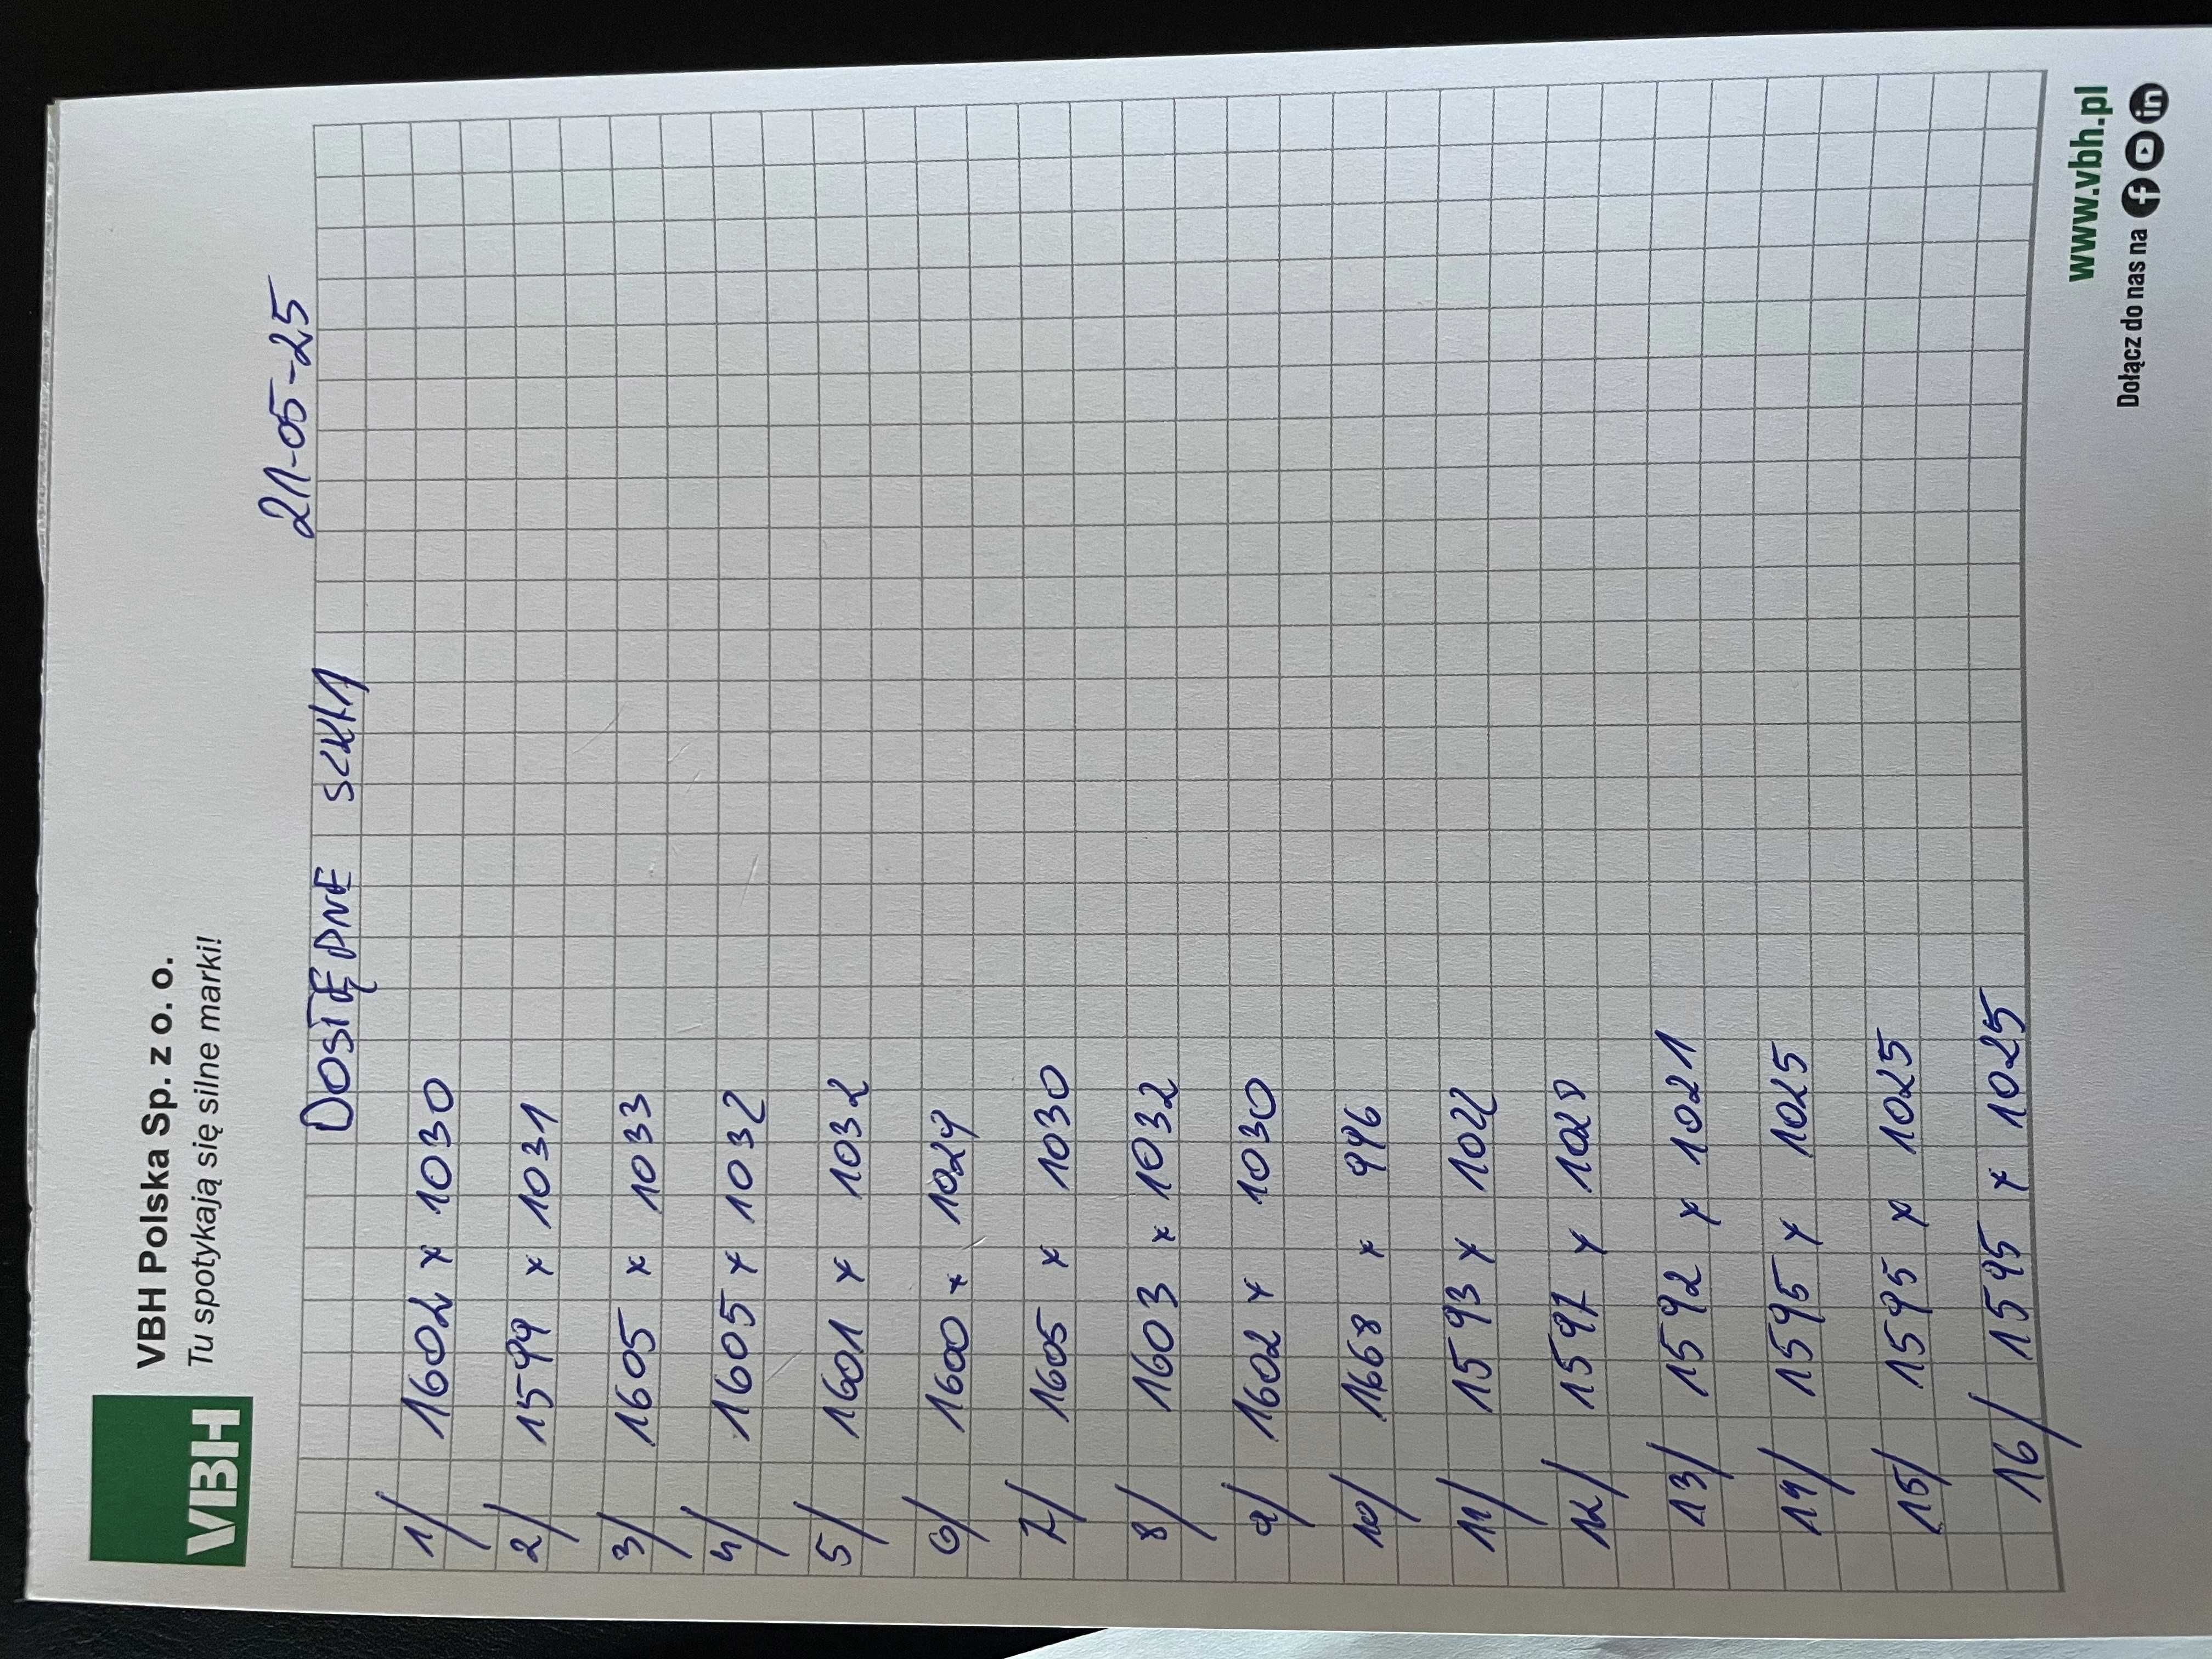 VBH
VBH Polska Sp. z o. o.
Tu spotykają się silne marki!
21-05-25
DOSTĘPNE SZKŁA
1/ 1602 x 1030
2/ 1599 x 1031
3/ 1605 x 1033
4/ 1605 x 1032
5/ 1601 x 1032
6/ 1600 x 1029
7/ 1605 x 1030
8/ 1603 x 1032
9/ 1602 x 1030
10/ 1668 x 996
11/ 1593 x 1022
12/ 1597 x 1028
13/ 1592 x 1021
14/ 1595 x 1025
15/ 1595 x 1025
16/ 1595 x 1025
www.vbh.pl
Dołącz do nas na